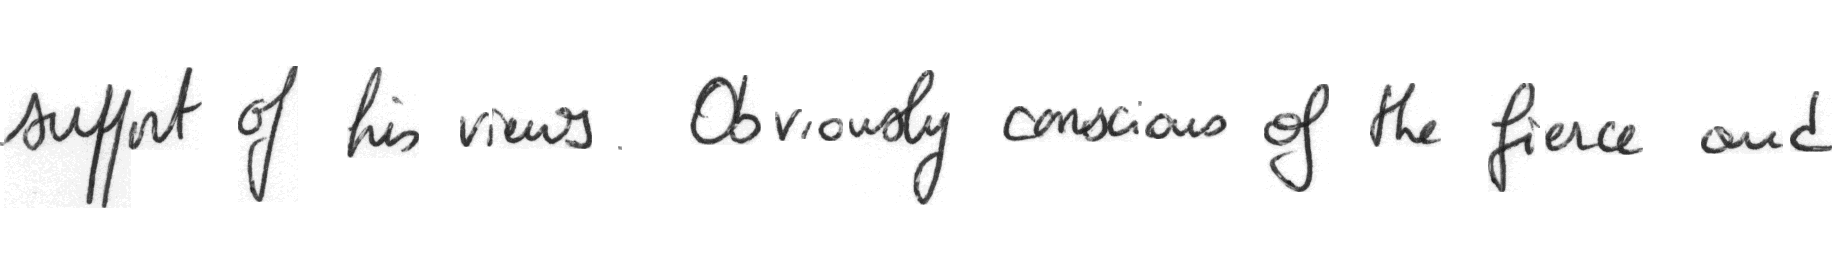 support of his views. Obviously conscious of the fierce and